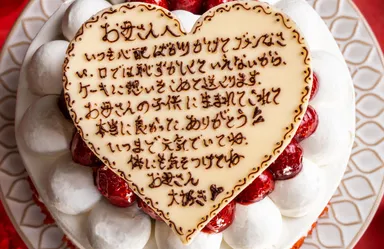 お母さんへ
いつも心配ばかりかけてゴメンなさ
い。口では恥ずかしくていえないから、
ケーキに想いをこめて送ります。
お母さんの子供に生まれてこれて
本当に良かった。ありがとう
いつまでも元気でいてね。
体にも気をつけてね
お母さん
大好き